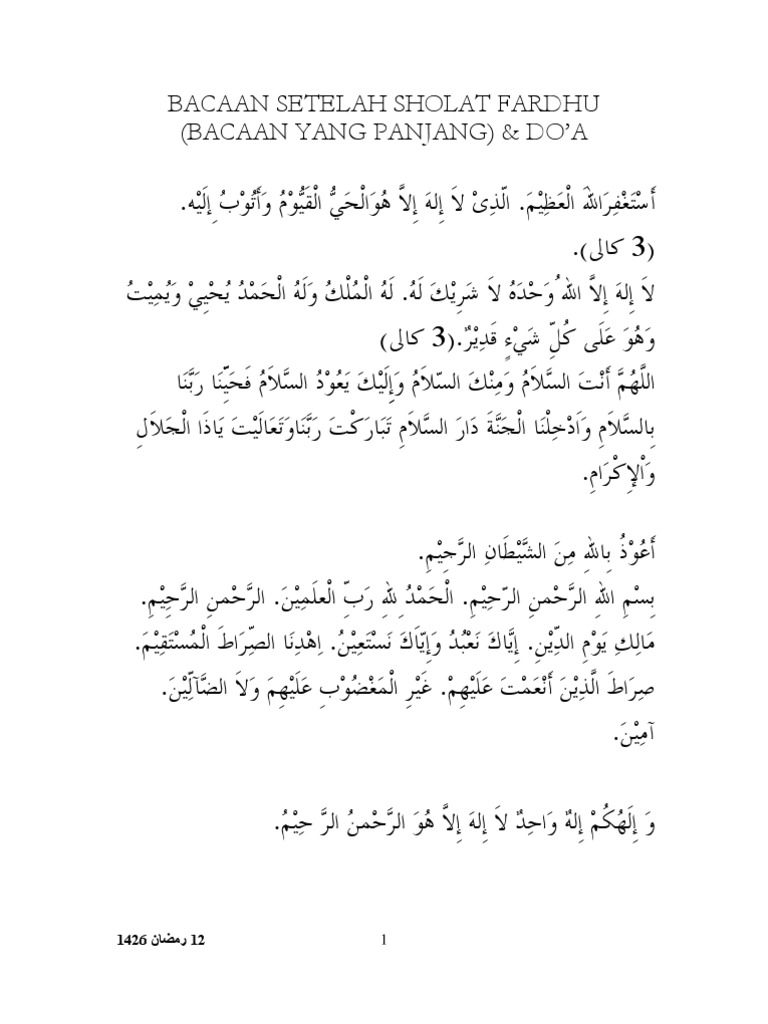 BACAAN SETELAH SHOLAT FARDHU
(BACAAN YANG PANJANG) & DO’A
أَسْتَغْفِرَاللهَ الْعَظِيْمَ. الّذِىْ لاَ إِلهَ إِلاَّ هُوَالْحَيُّ الْقَيُّوْمُ وَأَتُوْبُ إِلَيْه.
(3 كالى).
لاَ إِلهَ إِلاَّ اللهُ وَحْدَهُ لاَ شَرِيْكَ لَهُ. لَهُ الْمُلْكُ وَلَهُ الْحَمْدُ يُحْيِيْ وَيُمِيْتُ
وَهُوَ عَلَى كُلِّ شَيْءٍ قَدِيْرٌ.(3 كالى)
اللَّهُمَّ أَنْتَ السَّلاَمُ وَمِنْكَ السّلاَمُ وَإِلَيْكَ يَعُوْدُ السَّلاَمُ فَحَيِّنَا رَبَّنَا
بِالسَّلاَمِ وَاَدْخِلْنَا الْجَنَّةَ دَارَ السَّلاَمِ تَبَارَكْتَ رَبَّنَاوَتَعَالَيْتَ يَاذَا الْجَلاَلِ
وَاْلإِكْرَامِ.
أَعُوْذُ بِاللهِ مِنَ الشَّيْطَانِ الرَّجِيْمِ.
بِسْمِ اللهِ الرَّحْمنِ الرّحِيْمِ. الْحَمْدُ ِللهِ رَبِّ الْعلَمِيْنَ. الرَّحْمنِ الرَّحِيْمِ.
مَالِكِ يَوْمِ الدِّيْنِ. إِيَّاكَ نَعْبُدُ وَإِيّاَكَ نَسْتَعِيْنُ. اِهْدِنَا الصِّرَاطَ الْمُسْتَقِيْمَ.
صِرَاطَ الَّذِيْنَ أَنْعَمْتَ عَلَيْهِمْ. غَيْرِ الْمَغْضُوْبِ عَلَيْهِمَ وَلاَ الضَّآلِّيْنَ.
آمِيْنَ.
وَ إِلَهُكُمْ إِلهٌ وَاحِدٌ لاَ إِلهَ إِلاَّ هُوَ الرَّحْمنُ الرَّ حِيْمُ.
12 رمضان 1426
1